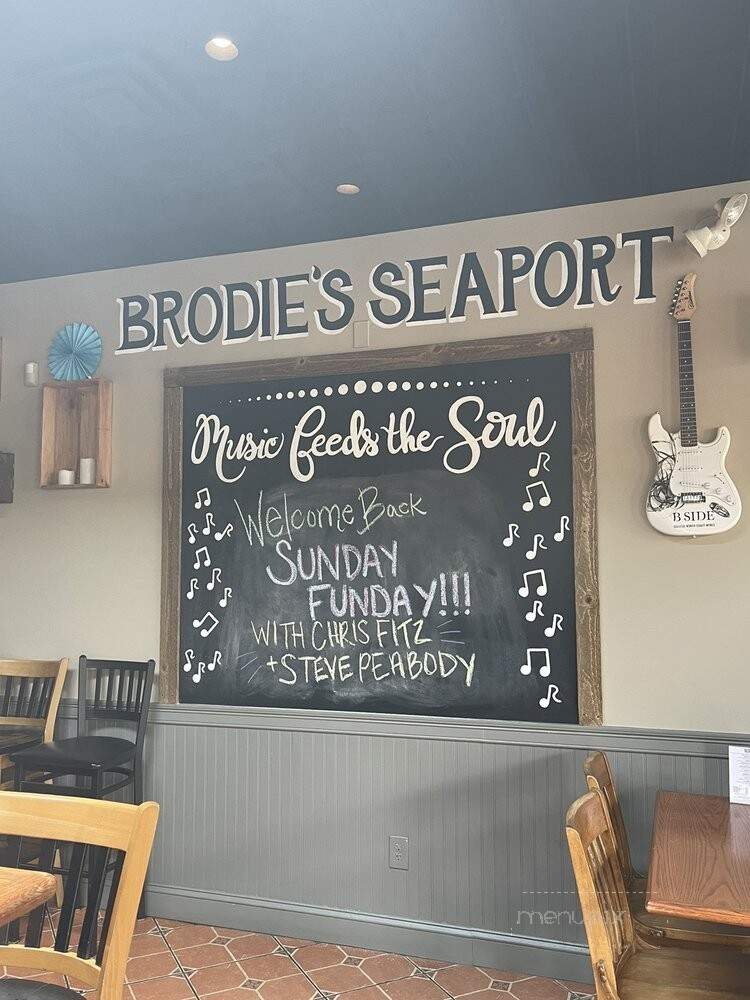 BRODIE'S SEAPORT
Music feeds the Soul
Welcome Back
SUNDAY
FUNDAY!!!
WITH CHRIS FITZ
+ STEVE PEABODY
B SIDE